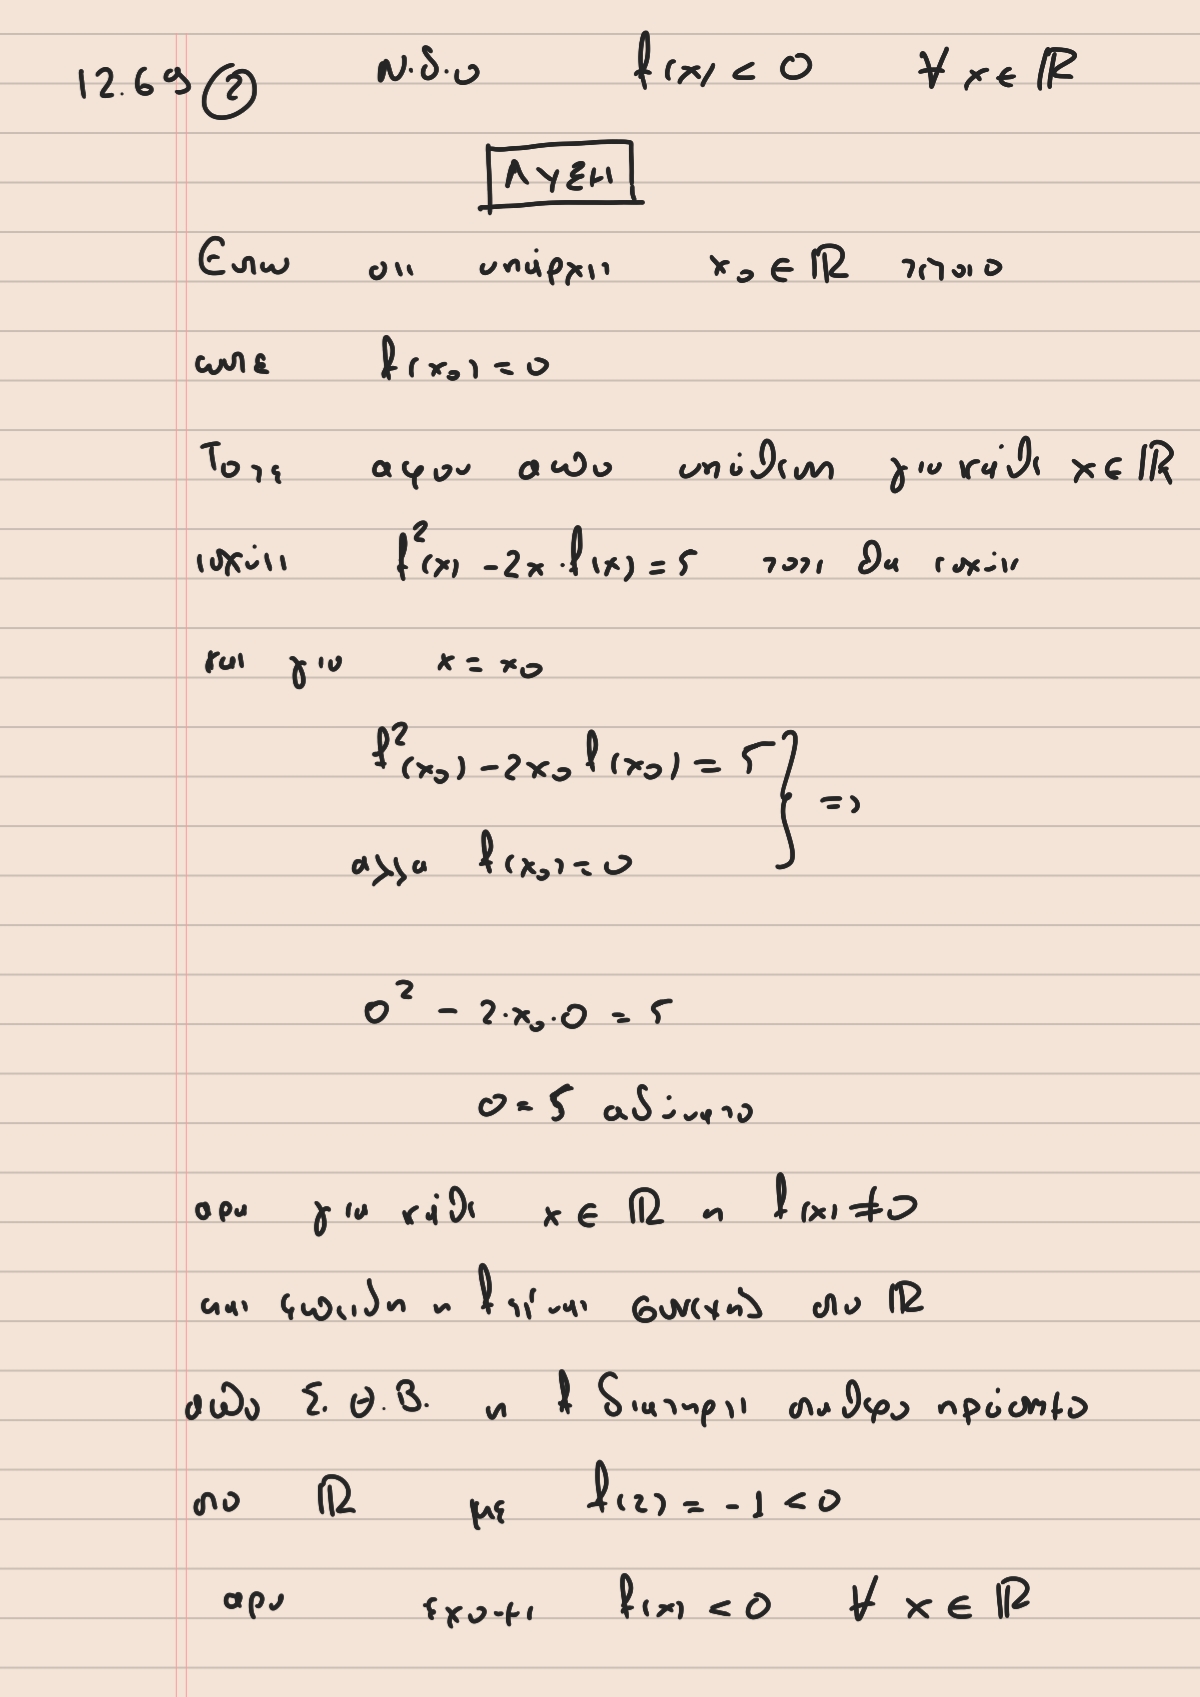 12.69 (2) Ν.δ.ο f(x) < 0 ∀ x ∈ ℝ
ΛΥΣΗ
Εστω οτι υπάρχει x₀ ∈ ℝ τετοιο
ωστε f(x₀) = 0
Τοτε αφου απο υπόθεση για κάθε x ∈ ℝ
ισχύει f²(x) - 2x · f(x) = 5 τοτε θα ισχύει
και για x = x₀
f²(x₀) - 2x₀ f(x₀) = 5 } =>
αλλα f(x₀) = 0
0² - 2·x₀·0 = 5
0 = 5 αδύνατο
αρα για κάθε x ∈ ℝ η f(x) ≠ 0
και επειδη η f είναι συνεχης στο ℝ
απο Σ.Θ.Β. η f διατηρει σταθερο πρόσημο
στο ℝ με f(2) = -1 < 0
αρα εχουμε f(x) < 0 ∀ x ∈ ℝ